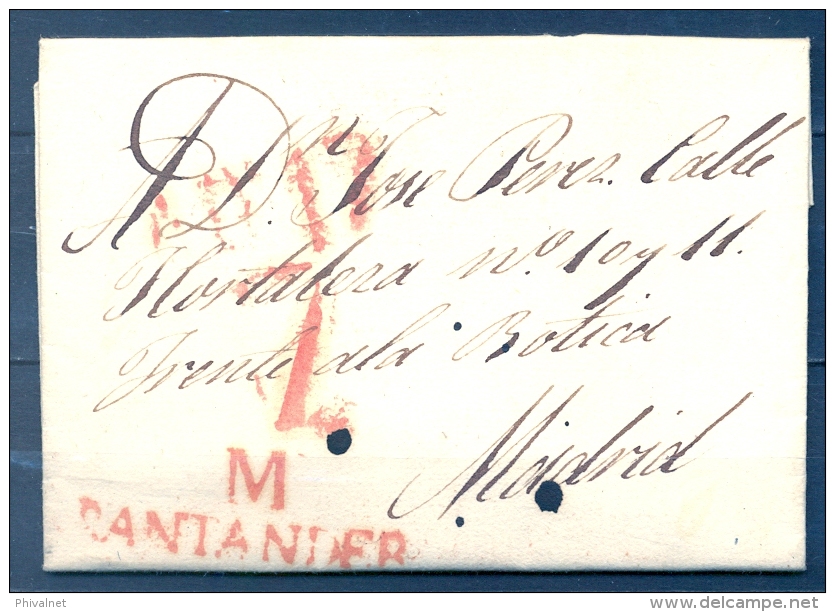 A D.n Jose Perez. Calle
Hortaleza nº. 10 y 11.
Frente ala Botica
Madrid
M
SANTANDER
Phivalnet
delcampe.net